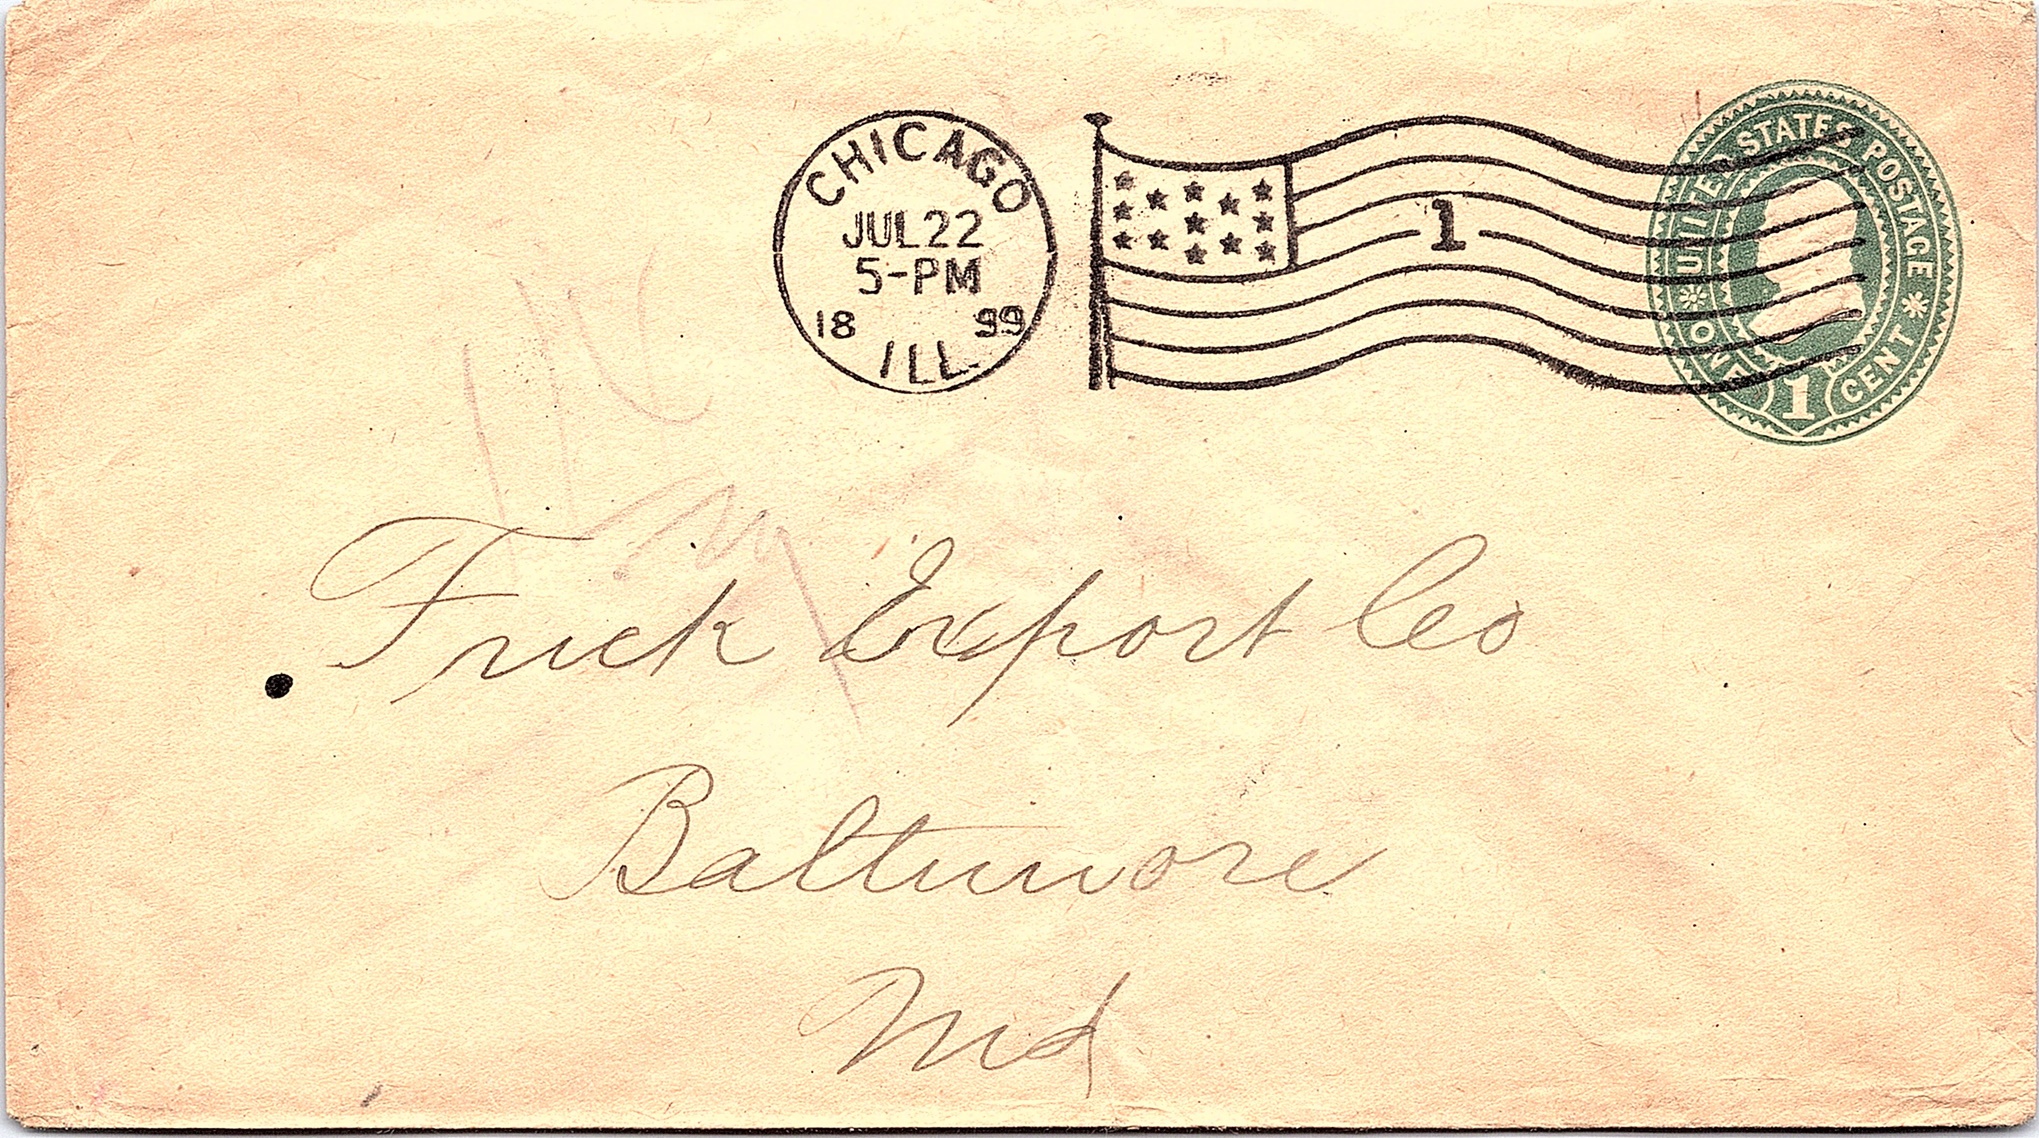 CHICAGO
JUL 22
5-PM
18 99
ILL.
1
UNITED STATES POSTAGE
ONE 1 CENT
Frick Export Co
Baltimore
Md